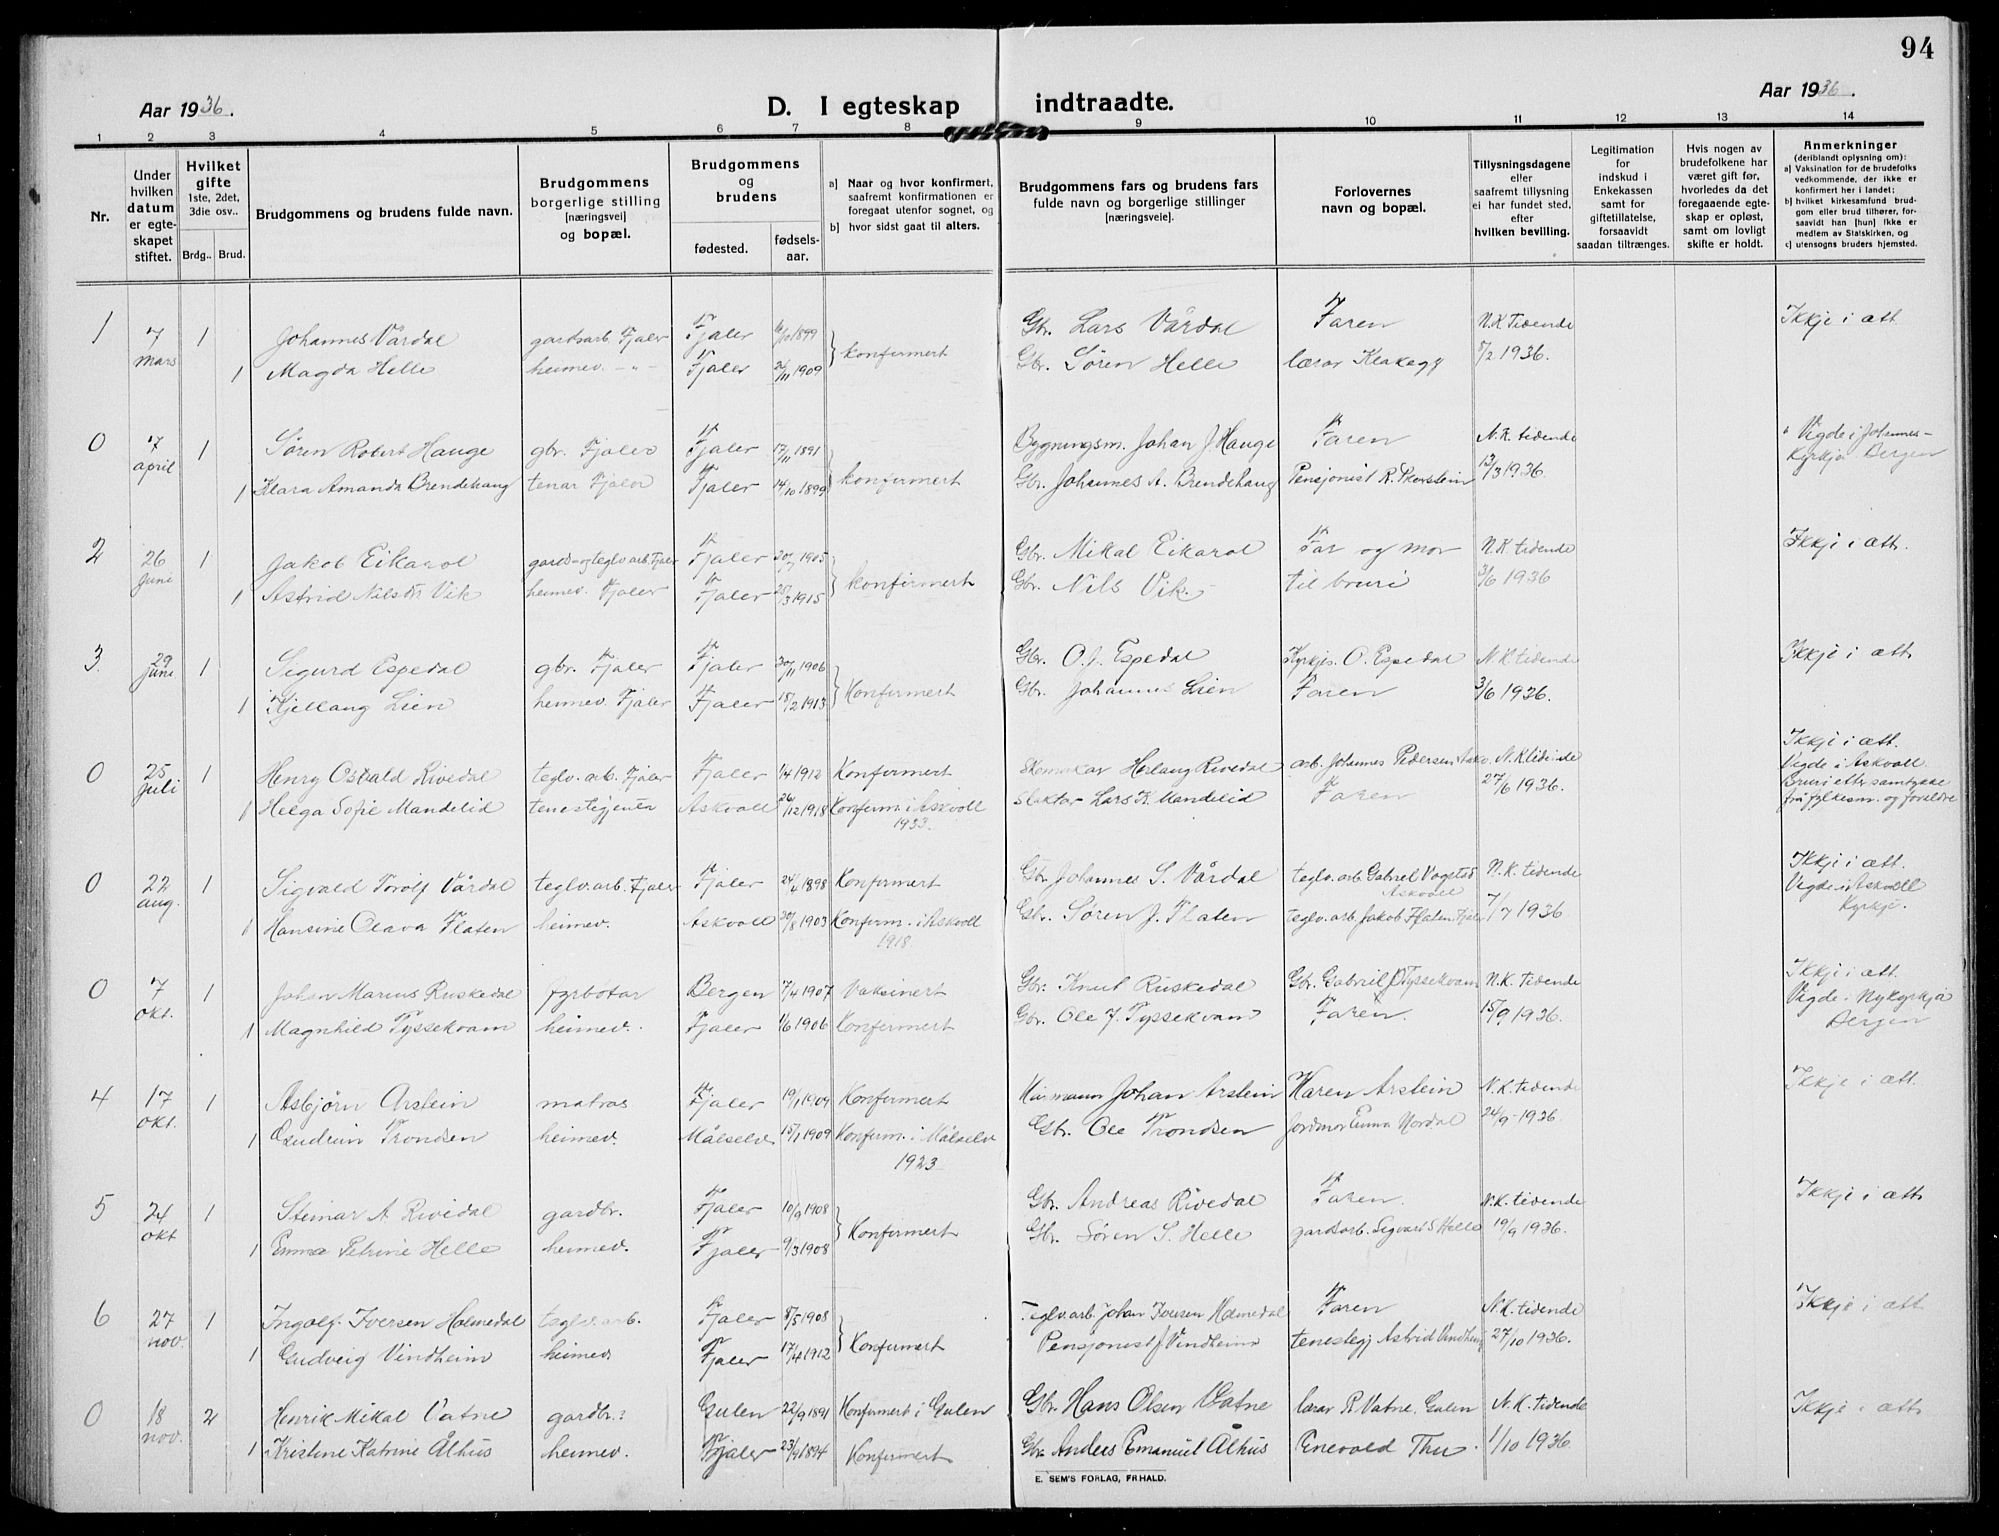 94
Aar 1936.
D. I egteskap indtraadte.
Aar 1936.
1 2 3 4 5 6 7 8 9 10 11 12 13 14
Nr.
Under hvilken datum er egteskapet stiftet.
Hvilket gifte 1ste, 2det, 3die osv..
Brdg.. Brud.
Brudgommens og brudens fulde navn.
Brudgommens borgerlige stilling [næringsvei] og bopæl.
Brudgommens og brudens
fødested.
fødselsaar.
a) Naar og hvor konfirmert, saafremt konfirmationen er foregaat utenfor sognet, og
b) hvor sidst gaat til alters.
Brudgommens fars og brudens fars fulde navn og borgerlige stillinger [næringsveie].
Forlovernes navn og bopæl.
Tillysningsdagene eller saafremt tillysning ei har fundet sted, efter hvilken bevilling.
Legitimation for indskud i Enkekassen samt for giftetillatelse, forsaavidt saadan tiltrænges.
Hvis nogen av brudefolkene har været gift før, hvorledes da det foregaaende egteskap er opløst, samt om lovligt skifte er holdt.
Anmerkninger (deriblandt oplysning om): a) Vaksination for de brudefolks vedkommende, der ikke er konfirmert her i landet; b) hvilket kirkesamfund brudgom eller brud tilhører, forsaavidt han [hun] ikke er medlem av Statskirken, og c) utensogns bruders hjemsted.
1 7 mars 1 Johannes Vårdal gardsarb. Fjaler Fjaler 1899 Gbr. Lars Vårdal Faren N.K Tidende Ikkje i ætt
1 Magda Helle heimev. -"- Fjaler 26/11 1909 konfermert Gbr. Søren Helle lærar Klakegg 5/2 1936.
0 7 april 1 Søren Robert Hauge gbr. Fjaler Fjaler 17/11 1891 Bygningsm. Johan J Hauge Faren N.K. tidende Vigde i Johannes-
1 Klara Amanda Brendehaug Fjaler Fjaler 14/10 1899 konfermert Gbr. Johannes A. Brendehaug Pensjonist R. 13/3 1936. Kyrkja Bergen
2 26 Juni 1 Jakob Eikarol gards- og teglv. arb. Fjaler Fjaler 1905 Gbr. Mikal Eikarol Far og mor N.K. tidende Ikkje i ætt.
1 Astrid Vik heimev. Fjaler Fjaler 25/3 1915 konfermert Gbr. Nils Vik. til bruri 3/6 1936
3. 29 Juni 1 Sigurd Espedal gbr. Fjaler Fjaler 30/11 1906 Gbr. O. J. Espedal O. Espedal N.K. tidende Ikkje i ætt
1 Kjellaug Lien heimev. Fjaler Fjaler 18/2 1913 Konfermert Gbr. Johannes Lien Faren 3/6 1936.
0 25 Juli 1 Henry Osvald Rivedal teglv. arb. Fjaler Fjaler 1/4 1912 Konfermert Skomakar Herlaug Rivedal arb. Johannes Pedersen N.K. tidende Ikkje i ætt. Vigde i Askvoll
1 Helga Sofie Mandelid tenestgjente Askvoll 26/12 1918 Konferm. i Askvoll 1933. slaktar Lars K. Mandelid Faren 27/6 1936. Bruri etter samtykke frå fylkesm. og foreldre
0 22 aug. 1 Sigvald Torolf Vårdal teglv. arb. Fjaler Fjaler 24/4 1898 Konfermert Gbr. Johannes S. Vårdal teglv. arb Gabriel Askvoll N.K. tidende Ikkje i ætt. Vigde i Askvoll
1 Hansine Olava Flaten heimev. Askvoll 30/8 1903 Konferm. i Askvoll 1918 Gbr. Søren J. Flaten teglv. arb. Jakob Flaten Fjaler 7/7 1936 Kyrkje.
0 7 okt. 1 Johan Marius Ruskedal fyrbøtar Bergen 7/4 1907 Vaksinert Gbr. Knut Ruskedal Gbr. Gabriel J Tyssekvam N.K. tidende Ikkje i ætt. Vigde i Nykyrkja
1 Magnhild Tyssekvam heimev. Fjaler 1/6 1906 Konfermert Gbr. Ole J. Tyssekvam Faren 15/9 1936. Bergen
4 17 okt. 1 Asbjørn Arstein matros Fjaler 19/1 1904 Konfermert Johan Arstein Karen Arstein N.K. tidende Ikkje i ætt.
1 Gudrun Trondsen heimev. Målselv 15/1 1909 Konferm. i Målselv 1923 Gbr. Ole Trondsen Jordmor Emma Nordal 24/9 - 1936.
5 24 okt 1 Steinar A Rivedal gardbr. Fjaler 10/9 1908 Gbr. Andreas Rivedal Faren. N.K. tidende Ikkje i ætt
1 Emma Petrine Helle heimev. Fjaler 9/3 1908 Konfermert Gbr. Søren S. Helle gardsarb. Sigvart S Helle 19/9 1936.
6 27 nov. 1 Ingolf Iversen Holmedal teglv. arb. Fjaler 8/5 1908 Teglv. arb. Johan Iversen Holmedal Faren N.K. tidende Ikkje i ætt
1 Gudveig Vindheim heimev Fjaler 17/4 1912 Konfermert Pensjonist J Vindheim tenestegj Astrid Vindheim 27/10 1936.
0 18 nov. 2 Henrik Mikal Vatne gardbr. Gulen 22/9 1891 Konfermert i Gulen Gbr Hans Olsen Vatne lærar R Vatne, Gulen N.K. tidende Ikkje i ætt
1 Kristine Katrine Ålhus heimev. Fjaler 23/9 1894 Konfermert Gbr. Anders Emanuel Ålhus Enevald Thu. 1/10 1936.
E. SEM'S FORLAG, FR.HALD.